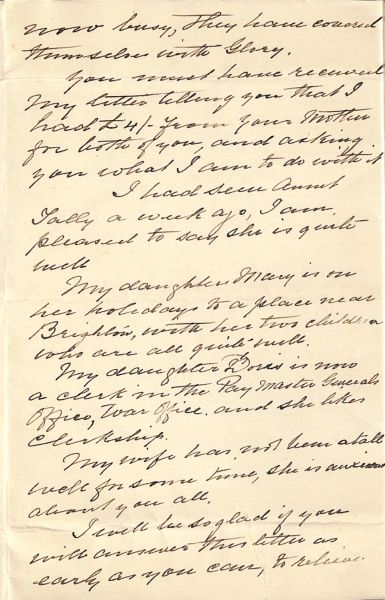 now busy, They have covered
themselves with Glory.
You must have received
my letter telling you that I
had £4/- from your Mother
for both of you, and asking
you what I am to do with it
I had seen Aunt
Tally a week ago, I am
pleased to say she is quite
well
My daughter Mary is on
her holidays to a place near
Brighton, with her two children
who are all quite well.
My daughter Doris is now
a clerk in the Pay Master Generals
Office, War Office. and she likes
clerkship.
My wife has not been at all
well for some time, she is anxious
about you all.
I will be so glad if you
will answer this letter as
early as you can, to relieve